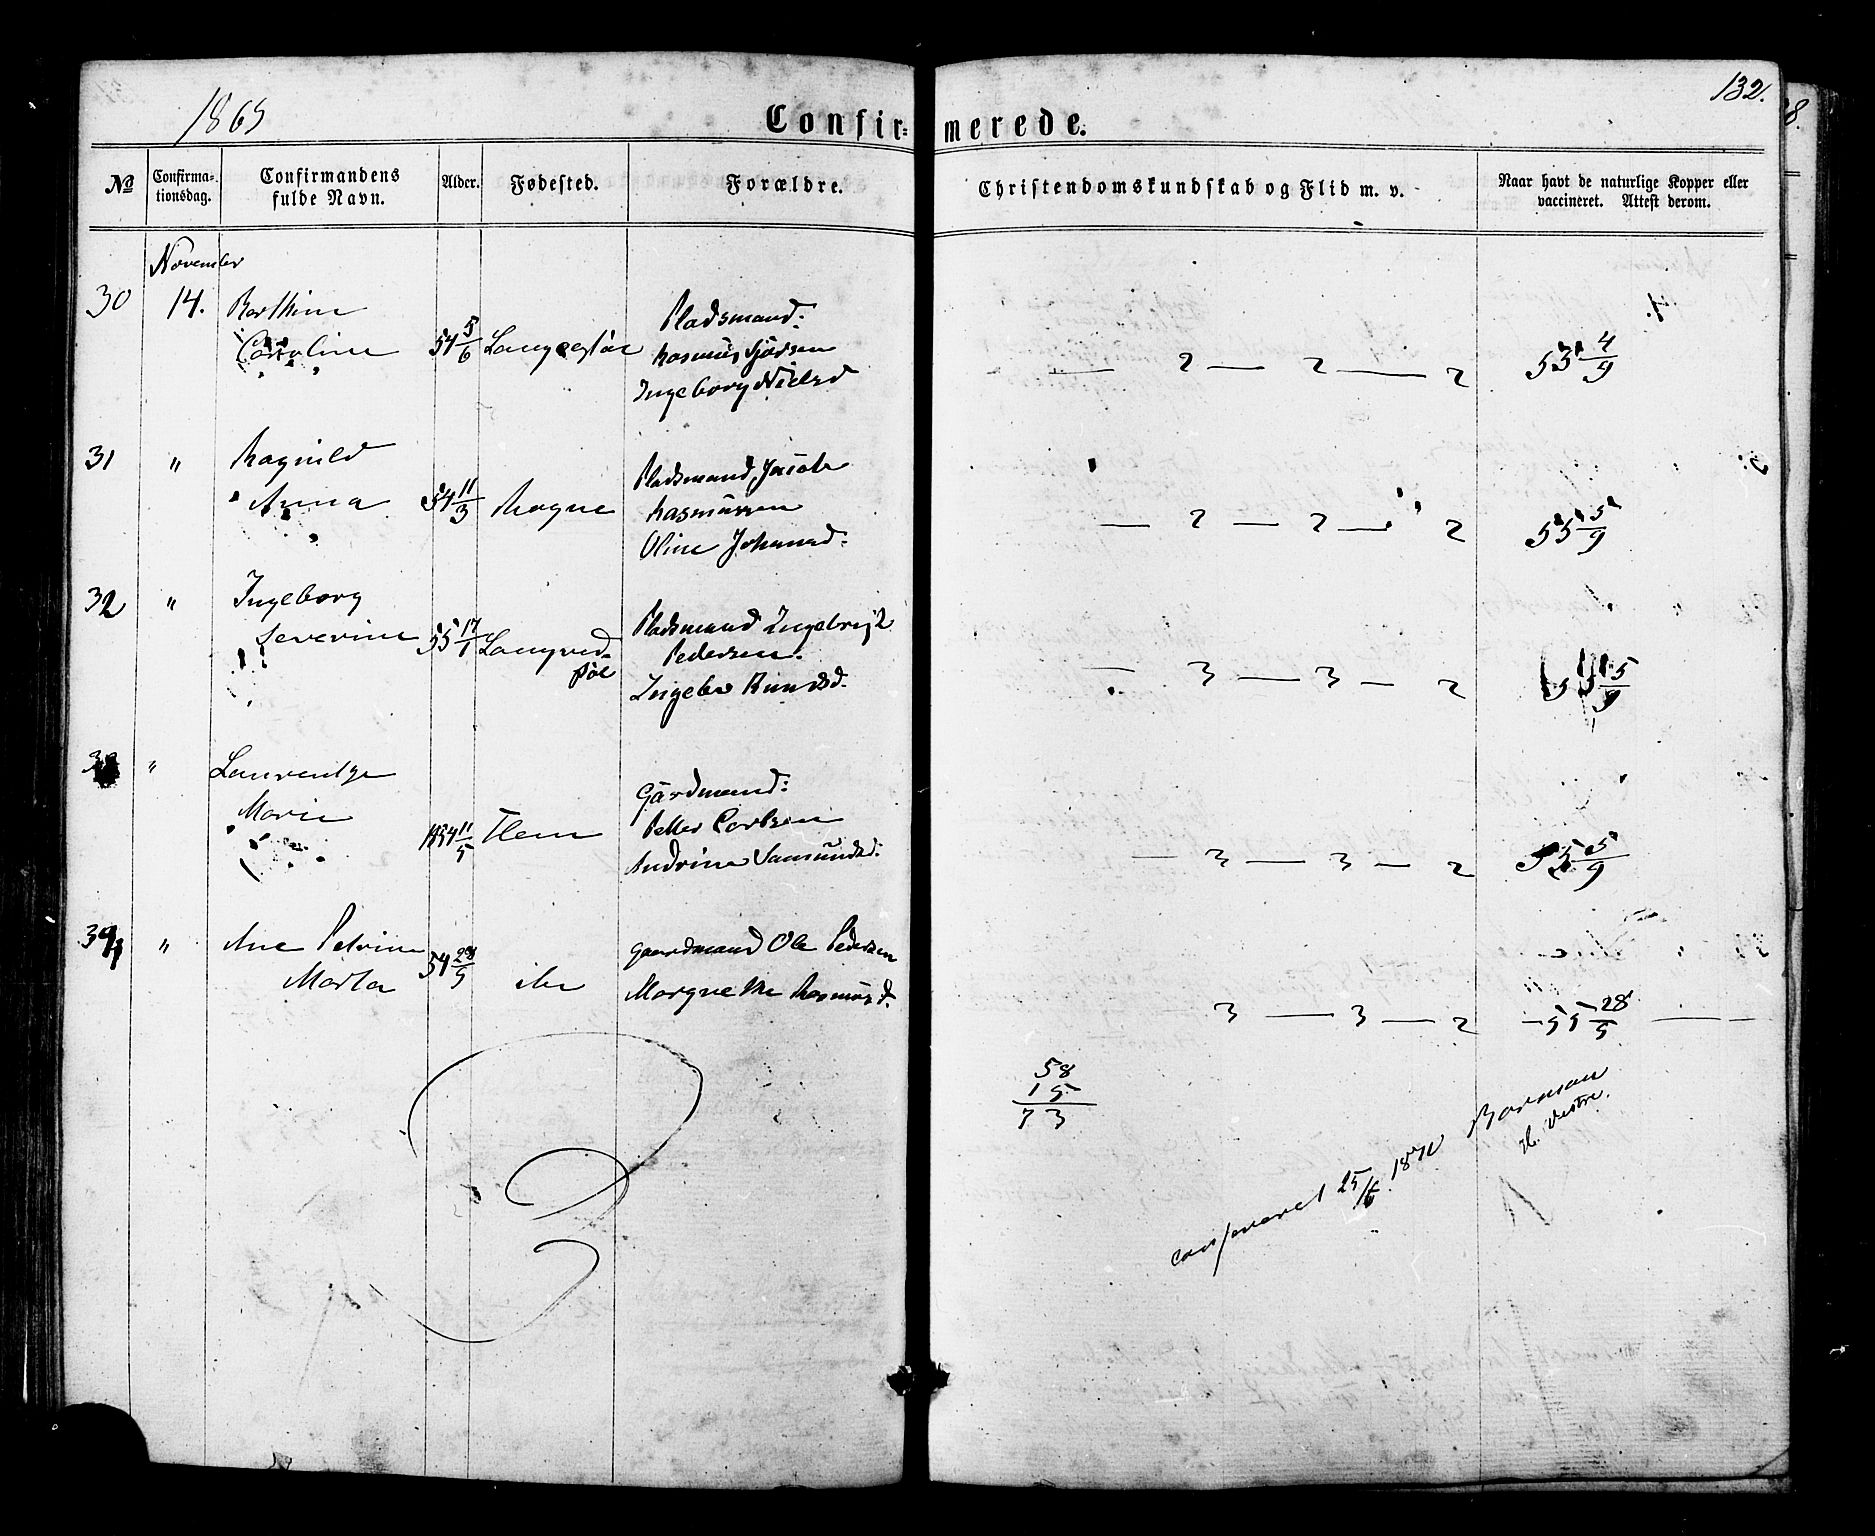 132.
1869
Confir= merede.
No
Confirma=
tionsdag.
Confirmandens
fulde Navn.
Alder.
Fødested.
Forældre.
Christendomskundskab og Flid m. v.
Naar havt de naturlige Kopper eller
vaccineret. Attest derom.
November
30 14. Berthine
Caroline 54 5/6
Pladsmand:
Rasmus
Ingeborg Nielsd
2 — 2 — 2 53 4/9
31 " Ragnild
Anna 54 11/3 Rogne
Pladsmand, Jacob
Rasmussen
Oline Johansd:
— 2 — 2 — 2 55 5/9
32 " Ingeborg
Severine 55 17/1
Pladsmand Ingebrigt
Pedersen.
Knudsd.
— 3 — 3 — 2 5/9
33 " Laurentze
Marie 1854 11/5 Flem
Gårdmand:
Petter Carlsen
Andrine Samundsd:
— 3 — 3 — 2 55 5/9
34 " Ane Petrine
Marta 54 28/5
gaardmand Ole Pedersen
Margrethe Rasmusd.
3 — 3 — 2 — 55 28/5 — —
58
15
73
confereret 25/6 1870